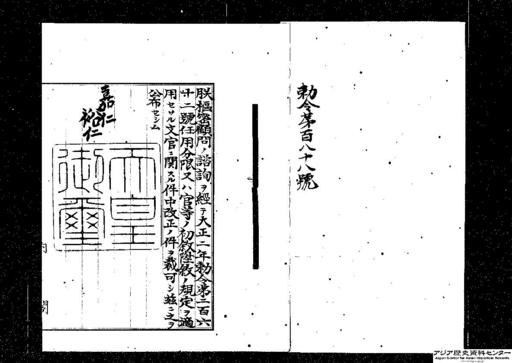 勅令第百八十八號
朕樞密顧問ノ諮詢ヲ經テ大正二年勅令第二百六
十二號任用分限又ハ官等ノ初敍陞敍ノ規定ヲ適
用セサル文官ニ關スル件中改正ノ件ヲ裁可シ茲ニ之ヲ
公布セシム
嘉仁
裕仁
天皇
御璽
内閣
アジア歴史資料センター
Japan Center for Asian Historical Records